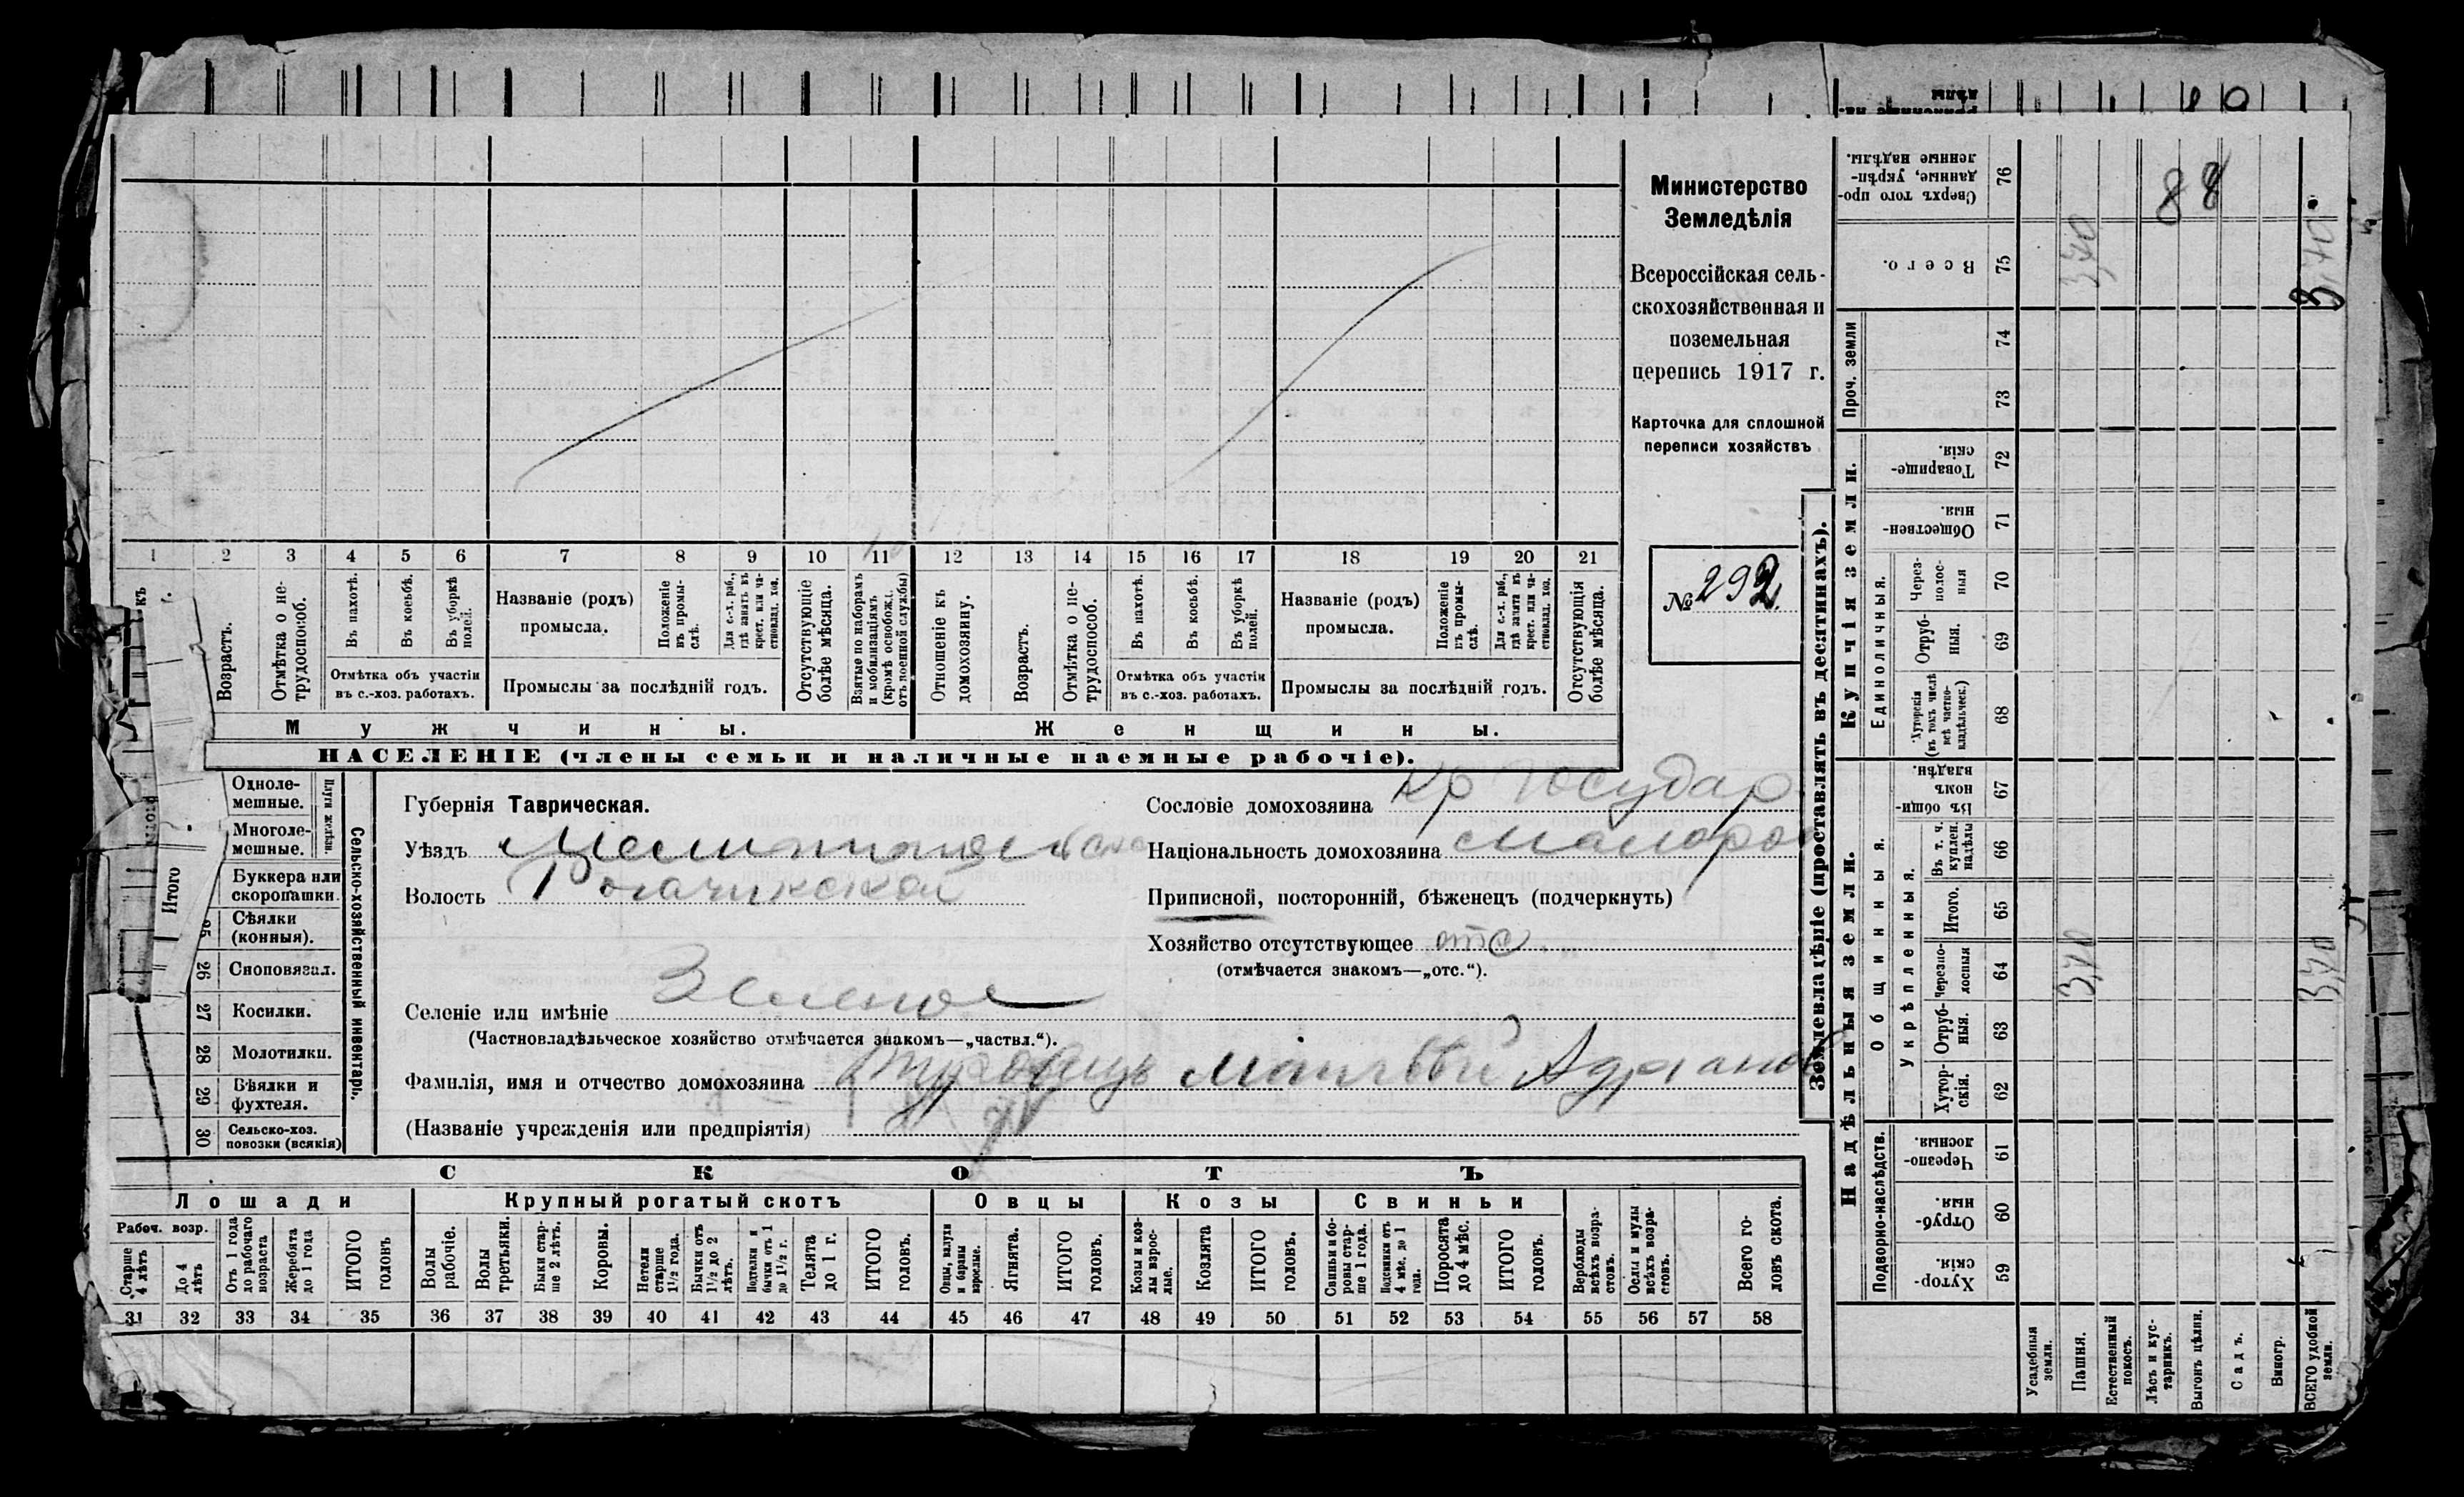 Министерство
Земледѣлія
Всероссійская сель-
скохозяйственная и
поземельная
перепись 1917 г.
Карточка для сплошной
переписи хозяйствъ
№ 292
1 2 3 4 5 6 7 8 9 10 11 12 13 14 15 16 17 18 19 20 21
Возрастъ.
Отмѣтка о не-
трудоспособ.
Въ пахотѣ.
Въ косьбѣ.
Въ уборкѣ
полей.
Отмѣтка объ участіи
въ с.-хоз. работахъ.
Названіе (родъ)
промысла.
Положеніе
въ промы-
слѣ.
Для с.-х. раб.,
гдѣ занятъ въ
крест. или ча-
стновлад. хоз.
Промыслы за послѣдній годъ.
Отсутствующіе
болѣе мѣсяца.
Взятые по наборамъ
и мобилизаціямъ
(кромѣ освобожд.
отъ военной службы)
Отношеніе къ
домохозяину.
Возрастъ.
Отмѣтка о не-
трудоспособ.
Въ пахотѣ.
Въ косьбѣ.
Въ уборкѣ
полей.
Отмѣтка объ участіи
въ с.-хоз. работахъ.
Названіе (родъ)
промысла.
Положеніе
въ промы-
слѣ.
Для с.-х. раб.,
гдѣ занята въ
крест. или ча-
стновлад. хоз.
Промыслы за послѣдній годъ.
Отсутствующія
болѣе мѣсяца.
Мужчины.
Женщины.
НАСЕЛЕНІЕ (члены семьи и наличные наемные рабочіе).
Одноле-
мешные.
Многоле-
мешные.
Буккера или
скоропашки.
Сѣялки
(конныя).
26 Сноповязал.
27 Косилки.
28 Молотилки.
29 Вѣялки и
фухтеля.
30 Сельско-хоз.
повозки (всякія)
Сельско-хозяйственный инвентарь.
Итого
Губернія Таврическая.
Уѣздъ Мелитопольск
Волость Рогачикской
Селеніе или имѣніе Зеленое
(Частновладѣльческое хозяйство отмѣчается знакомъ—„частвл.“).
Фамилія, имя и отчество домохозяина Матвѣй
(Названіе учрежденія или предпріятія)
Сословіе домохозяина Кр Государ
Національность домохозяина малорос
Приписной, посторонній, бѣженецъ (подчеркнуть)
Хозяйство отсутствующее отс.
(отмѣчается знакомъ—„отс.“).
СКОТЪ
Лошади
Крупный рогатый скотъ
Овцы
Козы
Свиньи
Рабоч. возр.
Старше
4 лѣтъ
До 4
лѣтъ
Отъ 1 года
до рабочаго
возраста
Жеребята
до 1 года
ИТОГО
головъ
Волы
рабочіе.
Волы
третьяки.
Быки стар-
ше 2 лѣтъ.
Коровы.
Нетели
старше
1½ года.
Бычки отъ
1½ до 2
лѣтъ.
Подтелки и
бычки отъ 1
до 1½ г.
Телята
до 1 г.
ИТОГО
головъ.
Овцы, валухи
и бараны
взрослые.
Ягнята.
ИТОГО
головъ.
Козы и коз-
лы взрос-
лые.
Козлята
ИТОГО
головъ.
Свиньи и бо-
ровы стар-
ше 1 года.
Подсвинки отъ
4 мѣс. до 1
года.
Поросята
до 4 мѣс.
ИТОГО
головъ.
Верблюды
всѣхъ возра-
стовъ.
Ослы и мулы
всѣхъ возра-
стовъ.
Всего го-
ловъ скота.
31 32 33 34 35 36 37 38 39 40 41 42 43 44 45 46 47 48 49 50 51 52 53 54 55 56 57 58
Землевладѣніе (проставлять въ десятинахъ).
Надѣльныя земли.
Купчія земли.
Проч. земли
Подворно-наслѣдств.
Общинныя.
Укрѣпленныя.
Единоличныя.
Сверхъ того про-
данные, укрѣп-
ленные надѣлы. 76
Всего. 75
74
73
Товарище-
скія. 72
Обществен-
ныя. 71
Через-
полос-
ныя 70
Отруб-
ныя. 69
Хуторскія
(въ томъ числѣ
всѣ частно-
владѣльческ.) 68
Въ общи-
номъ
владѣн. 67
Въ т. ч.
куплен.
надѣлы 66
Итого. 65
Черезпо-
лосныя 64
Отруб-
ныя. 63
Хутор-
скія. 62
Черезпо-
лосныя 61
Отруб-
ныя. 60
Хутор-
скія 59
Усадебныя
земли.
Пашня.
Естественный
покосъ.
Лѣсъ и кус-
тарникъ.
Выгонъ цѣлин.
Садъ.
Виногр.
ВСЕГО удобной
земли.
88
3,40
3,40
3,40
3,40